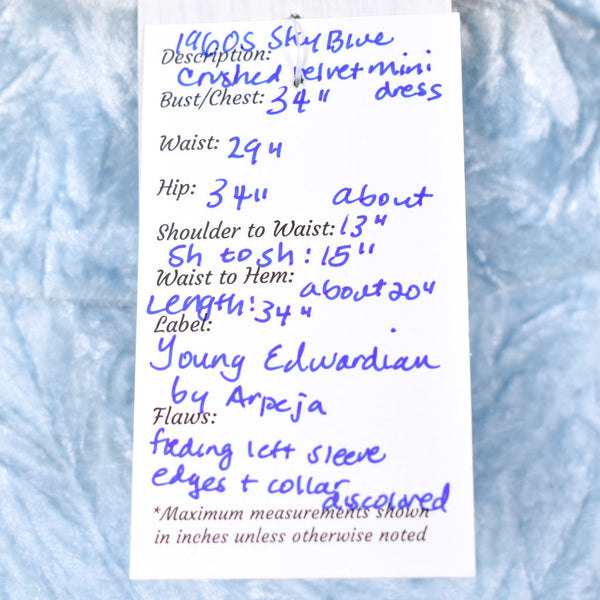 1960s Sky Blue
Description:
Crushed velvet mini
dress
Bust/Chest: 34"
Waist: 29"
Hip: 34"
about
Shoulder to Waist: 13"
Sh to sh: 15"
Waist to Hem:
about 20"
Length: 34"
Label:
Young Edwardian
by Arpeja
Flaws:
fading left sleeve
edges + collar
discolored
*Maximum measurements shown
in inches unless otherwise noted